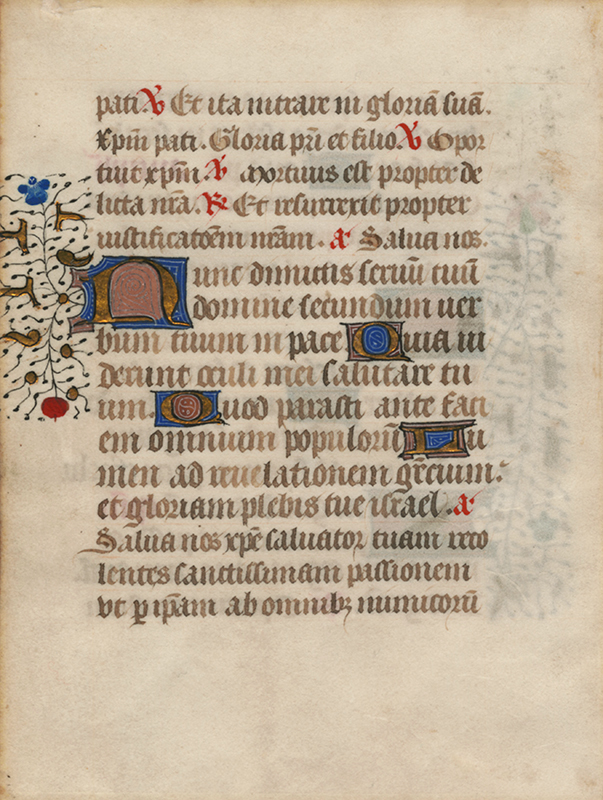 pati ℣ Et ita intrare in gloriā suā.
xp̄m pati . Gloria pr̄i et filio ℣ Opor
tuit xp̄m ℣ mortuus est propter de
licta nr̄a . ℟ Et resurrexit propter
iustificatōem nrām . a Salua nos .
Nunc dimittis seruū tuū
domine secundum uer
bum tuum in pace Quia ui
derunt oculi mei salutare tu
um . Quod parasti ante faci
em omnium populorū Lu
men ad reuelationem gēcium .
et gloriam plebis tue isrāel . a
Salua nos xp̄e saluator tuam reco
lentes sanctissimam passionem
vt ꝑ ip̄am ab omnibꝫ inimicorū